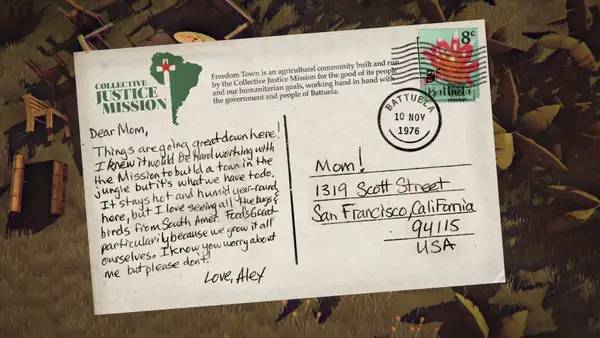 COLLECTIVE
JUSTICE
MISSION
Freedom Town is an agricultural community built and run
by the Collective Justice Mission for the good of its people
and our humanitarian goals, working hand in hand with
the government and people of Battuela.
8c
Battuela
BATTUELA
10 NOV
1976
Dear Mom,
Things are going great down here!
I knew it would be hard working with
the Mission to build a town in the
jungle but it's what we have todo.
It stays hot and humid year-round
here, but I love seeing all the bugs &
birds from South Amer. Food's Great
particularly because we grow it all
ourselves. I know you worry about
me but please don't.
Love, Alex
Mom!
1319 Scott Street
San Francisco, California
94115
USA